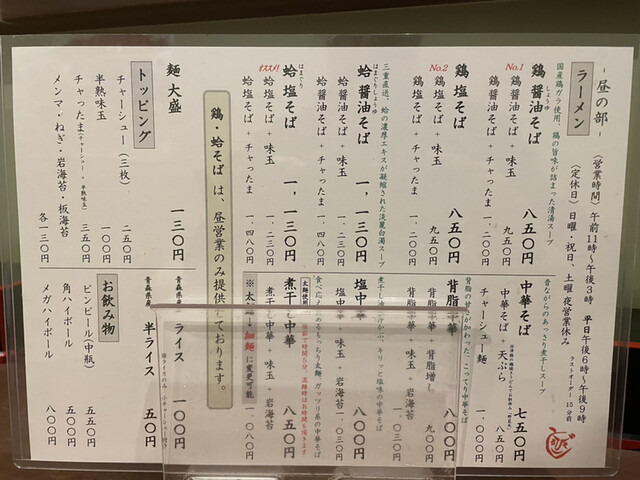 - 昼の部 -
〈営業時間〉午前11時〜午後3時 平日午後6時〜午後9時
ラストオーダー 15分前
〈定休日〉日曜・祝日、土曜 夜営業休み
ラーメン
国産鶏ガラ使用、鶏の旨味が詰まった清湯スープ
鶏醤油そば 八五〇円
しょうゆ
No.1
鶏醤油そば + 味玉 九五〇
鶏醤油そば + チャったま 一、二〇〇
鶏塩そば 八五〇円
No.2
鶏塩そば + 味玉 九五〇
鶏塩そば + チャったま 一、二〇〇
三重直送、蛤の濃厚エキスが凝縮された淡麗白濁スープ
蛤醤油そば 一、一三〇円
はまぐりしょうゆ
蛤醤油そば + 味玉 一、二三〇
蛤醤油そば + チャったま 一、四八〇
蛤塩そば 一、一三〇円
はまぐり
オススメ!
蛤塩そば + 味玉 一、二三〇
蛤塩そば + チャったま 一、四八〇
鶏・蛤そば は、昼営業のみ提供しております。
麺大盛 一三〇円
トッピング
チャーシュー(三枚) 二五〇円
半熟味玉 一〇〇円
チャったま(チャーシュー + 半熟味玉) 三五〇円
メンマ・ねぎ・岩海苔・板海苔 各一三〇円
昔ながらのあっさり煮干しスープ
中華そば 七五〇円
中華そば + 天ぷら 八五〇
チャーシュー麺 一、〇〇〇
背脂の甘さが加わった、こってり中華そば
背脂中華 八〇〇円
背脂中華 + 背脂増し 九〇〇
背脂中華 + 味玉 + 岩海苔 一、〇三〇
塩中華 八〇〇円
塩中華 + 味玉 + 岩海苔 一、〇三〇
煮干し中華 八五〇円
太麺使用
煮干し中華 + 味玉 + 岩海苔 一、〇八〇
※太麺→細麺に変更可能
青森県産 ライス 一〇〇円
青森県産 半ライス 五〇円
お飲み物
ビンビール(中瓶) 五五〇円
角ハイボール 五〇〇円
メガハイボール 八〇〇円